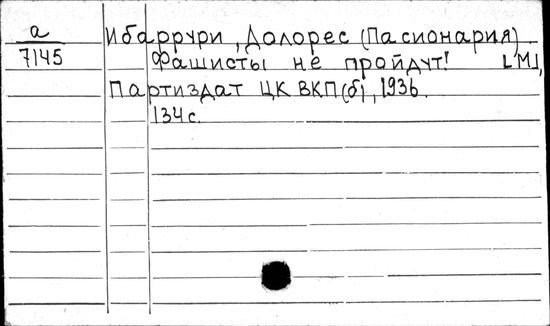 а
7145
Ибаррури, Долорес (Пасионария)
Фашисты не пройдут! [М],
Партиздат ЦК ВКП(б), 1936.
134 с.